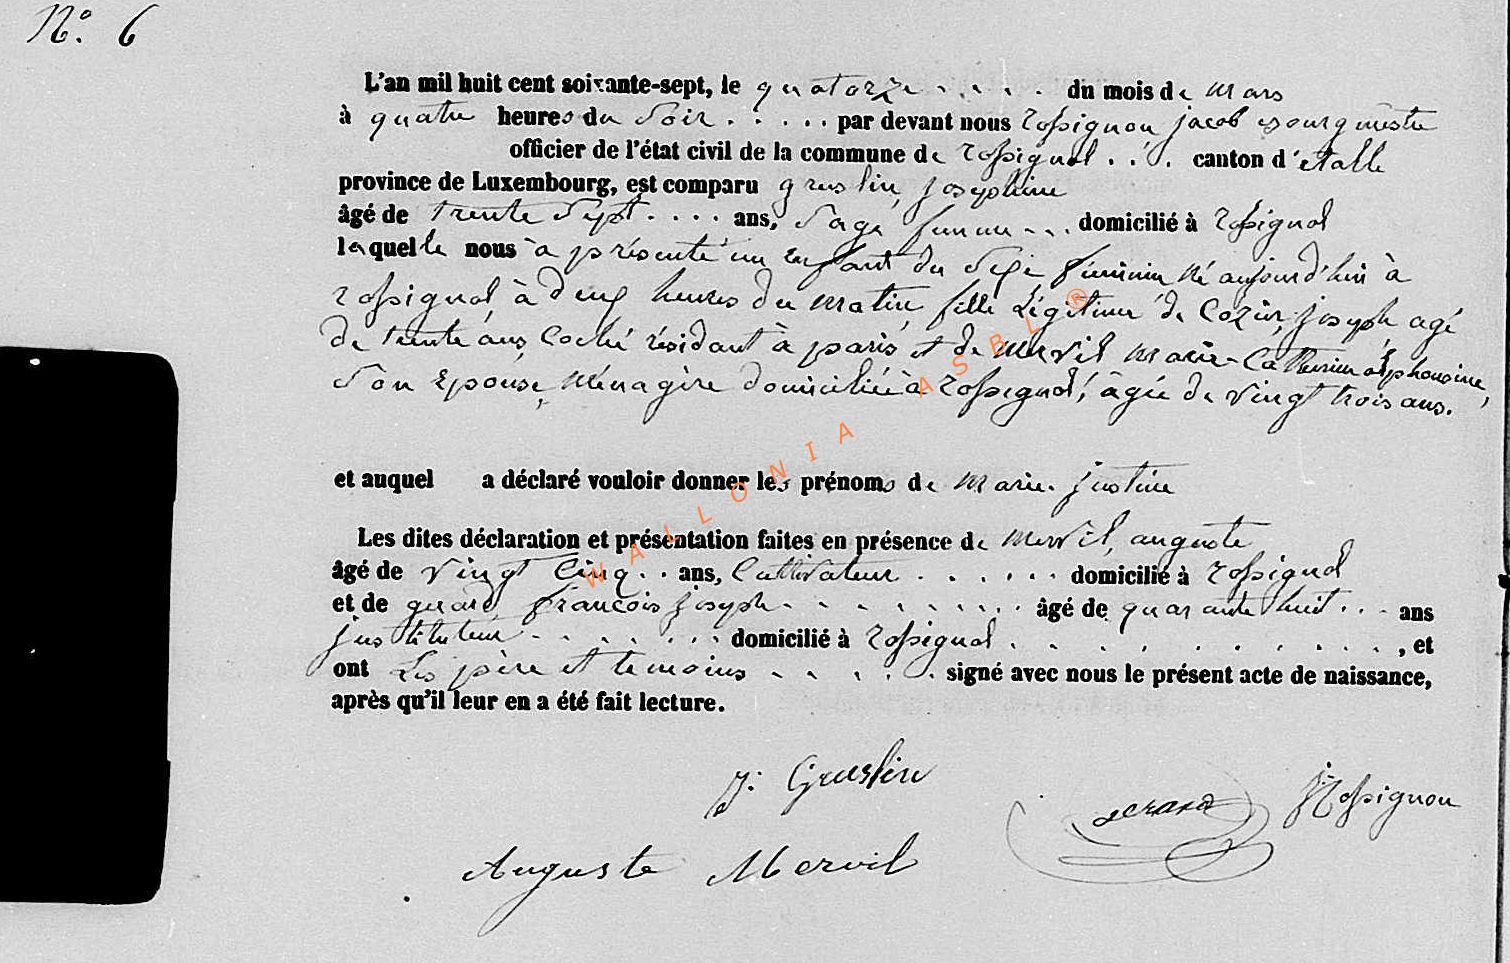 N°. 6
L'an mil huit cent soixante-sept, le quatorze . . . . . du mois de mars
à quatre heures du Soir . . . . . par devant nous rossignon jacob Bourgmestre
officier de l'état civil de la commune de rossignol . . . canton d'étalle
province de Luxembourg, est comparu gruslin, joséphine
âgé de trente Sept . . . . ans, Sage femme . . . domicilié à rossignol
laquelle nous à présenté un enfant du Sexe féminin né aujourd'hui à
rossignol à deux heures du matin, fille Légitime de Cozin, joseph agé
de trente ans, Coché résidant à paris et de mervil marie-Catherine alphonsine,
Son Epouse, ménagère domiciliée à rossignol, âgée de vingt trois ans.
et auquel a déclaré vouloir donner les prénoms de marie. justine
Les dites déclaration et présentation faites en présence de mervil, auguste
âgé de vingt Cinq . . ans, Cultivateur . . . . . . domicilié à rossignol
et de françois joseph . . . . . . . . . âgé de quarante huit . . . ans
justituteur . . . . . . . domicilié à rossignol . . . . . . . . . . , et
ont Les père et temoins . . . . . . signé avec nous le présent acte de naissance,
après qu'il leur en a été fait lecture.
J. Gruslin
J. Rossignon
Auguste Mervil
WALLONIA ASBL ®